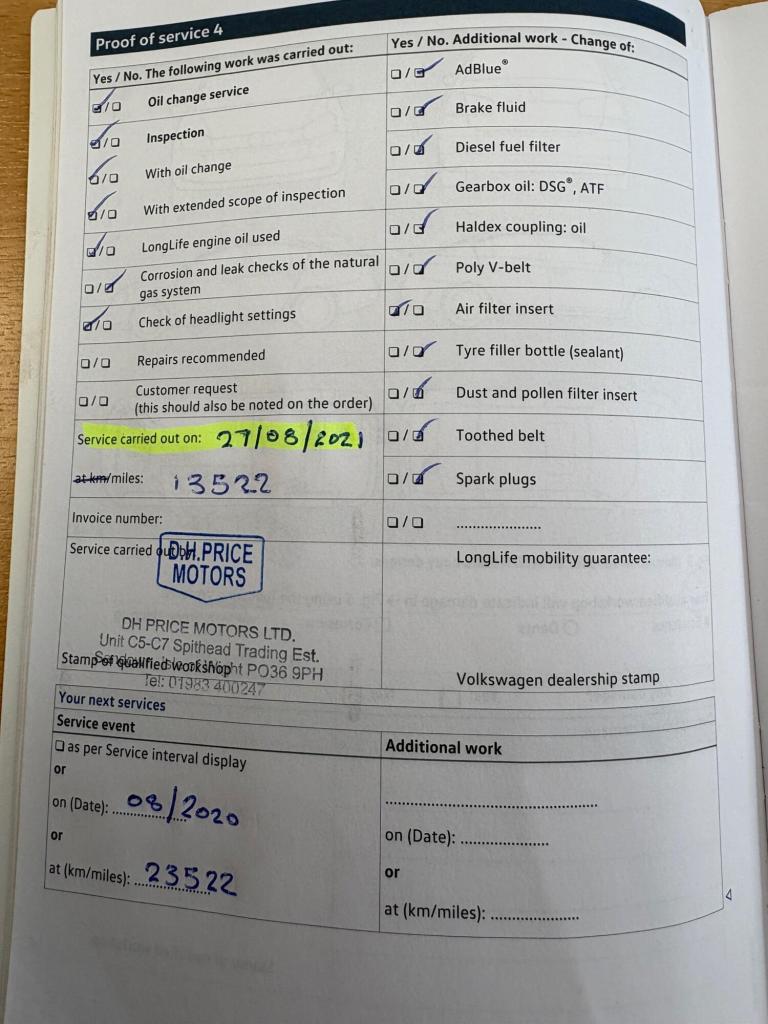 Proof of service 4
Yes / No. The following work was carried out:
Oil change service
Inspection
With oil change
With extended scope of inspection
LongLife engine oil used
Corrosion and leak checks of the natural
gas system
Check of headlight settings
Repairs recommended
Customer request
(this should also be noted on the order)
Service carried out on: 27/08/2021
at km/miles: 13522
Invoice number:
Service carried out by:
D.H.PRICE
MOTORS
DH PRICE MOTORS LTD.
Unit C5-C7 Spithead Trading Est.
Sandown, Isle of Wight PO36 9PH
Stamp of qualified workshop
Tel: 01983 400247
Yes / No. Additional work - Change of:
AdBlue®
Brake fluid
Diesel fuel filter
Gearbox oil: DSG®, ATF
Haldex coupling: oil
Poly V-belt
Air filter insert
Tyre filler bottle (sealant)
Dust and pollen filter insert
Toothed belt
Spark plugs
......................
LongLife mobility guarantee:
Volkswagen dealership stamp
Your next services
Service event
as per Service interval display
or
on (Date): 08/2020
or
at (km/miles): 23522
Additional work
......................................................
on (Date): ......................
or
at (km/miles): ......................
4